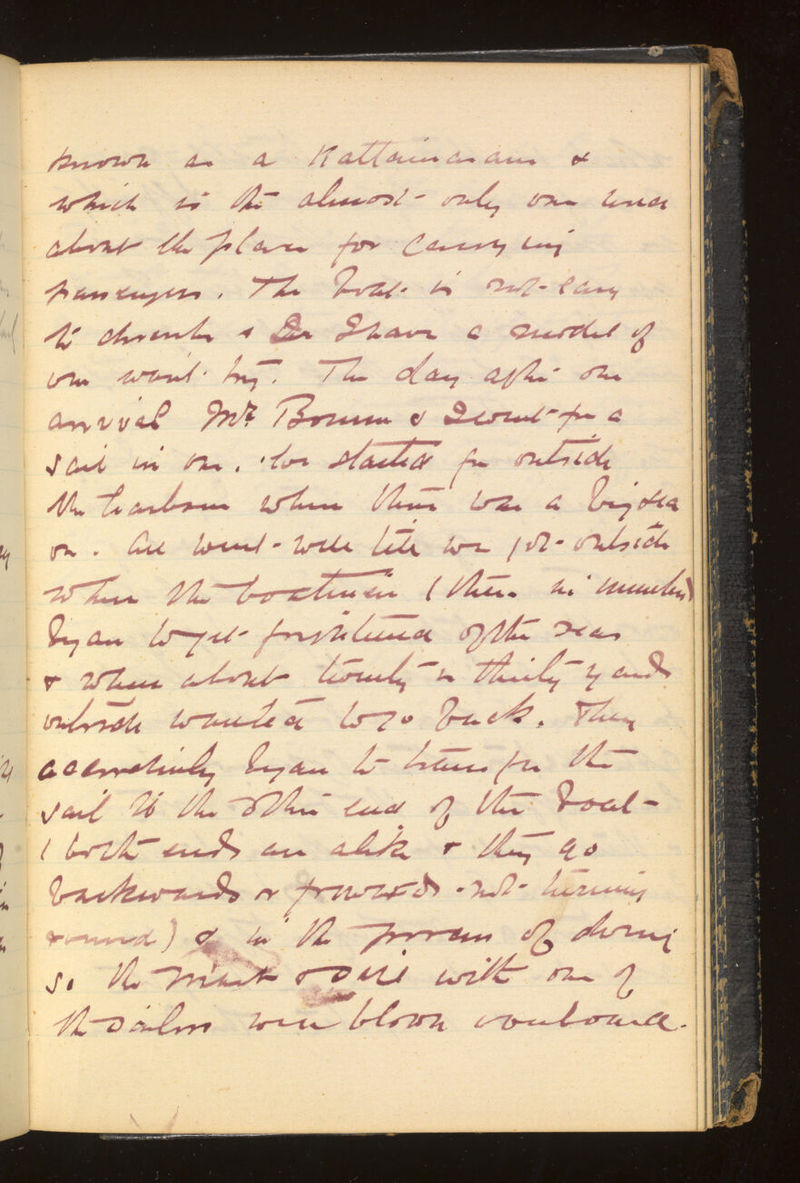 known as a Kattamaram &
which is the almost only one used
about the place for carrying
passengers. The boat is not easy
to describe & as I have a model of
one wont try. The day after our
arrival Mr. Bourne & I went for a
sail in one. We started for outside
the harbour where there was a big sea
on. All went well till we got outside
when the boatmen (three in number)
began to get frightened of the seas
& when about twenty or thirty yards
outside wanted to go back. They
accordingly began to transfer the
sail to the other end of the boat
(both ends are alike & they go
backwards or forwards not turning
round) & in the process of doing
so the mast & sail with one of
the sailors were blown overboard.